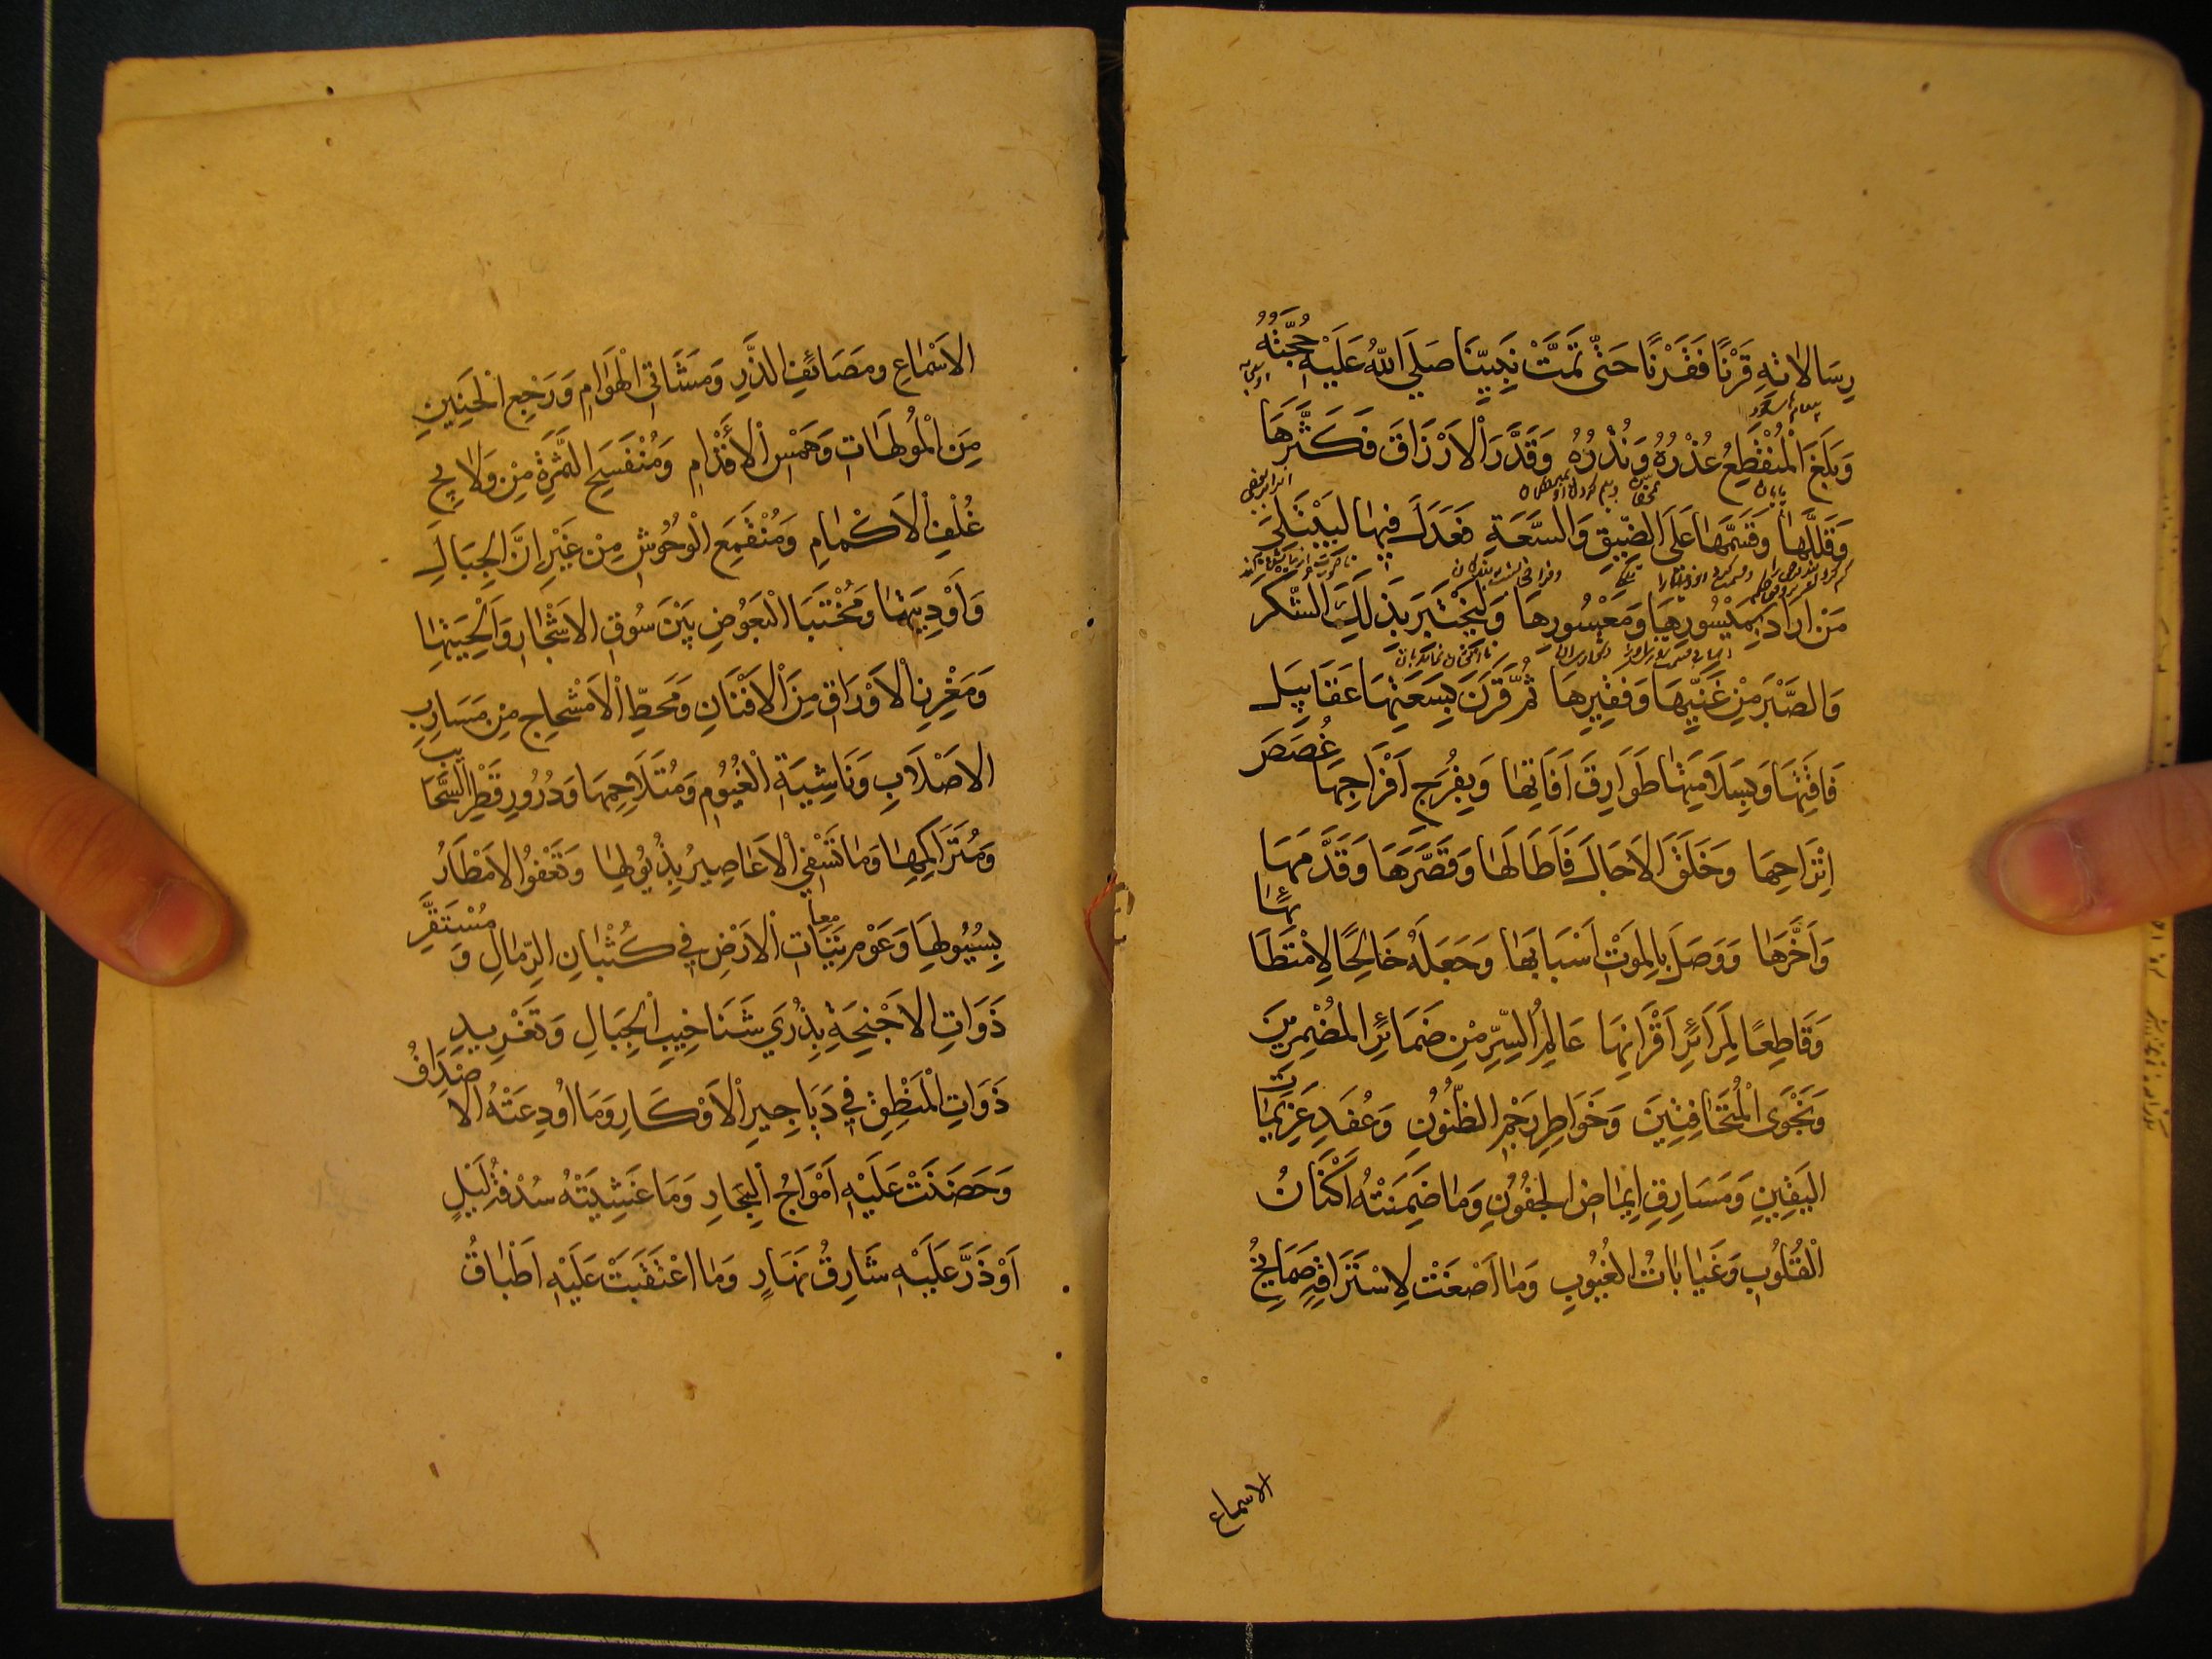 رِسَالَاتِهِ قَرْنًا فَقَرْنًا حَتّٰى تَمَّتْ بِنَبِيِّنَا صَلَّي اللّٰهُ عَلَيْهِ حُجَّتُهُ
وَبَلَغَ الْمُنْقَطِعُ عُذْرُهُ وَنُذُرُهُ وَقَدَّرَ الْاَرْزَاقَ فَكَثَّرَهَا
وَقَلَّلَهَا وَقَسَّمَهَا عَلَى الضِّيقِ وَالسَّعَةِ فَعَدَلَ فِيهَا لِيَبْتَلِيَ
مَنْ اَرَادَ بِمَيْسُورِهَا وَمَعْسُورِهَا وَلِيَخْتَبِرَ بِذٰلِكَ الشُّكْرَ
وَالصَّبْرَ مِنْ غَنِيِّهَا وَفَقِيرِهَا ثُمَّ قَرَنَ بِسَعَتِهَا عَقَابِيلَ
فَاقَتِهَا وَبِسَلَامَتِهَا طَوَارِقَ اٰفَاتِهَا وَبِفُرَجِ اَفْرَاجِهَا غُصَصَ
اِتْرَاحِهَا وَخَلَقَ الْاٰجَالَ فَاَطَالَهَا وَقَصَّرَهَا وَقَدَّمَهَا
وَاَخَّرَهَا وَوَصَلَ بِالْمَوْتِ اَسْبَابَهَا وَجَعَلَهُ خَالِجًا لِاَشْطَانِهَا
وَقَاطِعًا لِمَرَائِرِ اَقْرَانِهَا عَالِمُ السِّرِّ مِنْ ضَمَائِرِ الْمُضْمِرِينَ
وَنَجْوَى الْمُتَخَافِتِينَ وَخَوَاطِرِ رَجْمِ الظُّنُونِ وَعُقَدِ عَزِيمَاتِ
الْيَقِينِ وَمَسَارِقِ اِيمَاضِ الْجُفُونِ وَمَا ضَمِنَتْهُ اَكْنَانُ
الْقُلُوبِ وَغَيَابَاتُ الْغُيُوبِ وَمَا اَصْغَتْ لِاسْتِرَاقِهِ مَصَائِخُ
الاسماع
الْاَسْمَاعِ وَمَصَائِفِ الذَّرِّ وَمَشَاتِي الْهَوَامِ وَرَجْعِ الْحَنِينِ
مِنَ الْمُولَهَاتِ وَهَمْسِ الْاَقْدَامِ وَمُنْفَسَحِ الثَّمَرَةِ مِنْ وَلَايِجِ
غُلُفِ الْاَكْمَامِ وَمُنْقَمَعِ الْوُحُوشِ مِنْ غِيْرَانِ الْجِبَالِ
وَاَوْدِيَتِهَا وَمُخْتَبَاِ الْبَعُوضِ بَيْنَ سُوقِ الْاَشْجَارِ وَاَلْحِيَتِهَا
وَمَغْرِزِ الْاَوْرَاقِ مِنَ الْاَفْنَانِ وَمَحَطِّ الْاَمْشَاجِ مِنْ مَسَارِبِ
الْاَصْلَابِ وَنَاشِيَةِ الْغُيُومِ وَمُتَلَاحِمِهَا وَدُرُورِ قَطْرِ السَّحَابِ
وَمُتَرَاكِمِهَا وَمَا تَسْفِي الْاَعَاصِيرُ بِذُيُولِهَا وَتَعْفُو الْاَمْطَارُ
بِسُيُولِهَا وَعَوْمِ نَبَاتِ الْاَرْضِ فِي كُثْبَانِ الرِّمَالِ وَ مُسْتَقَرِّ
ذَوَاتِ الْاَجْنِحَةِ بِذُرَي شَنَاخِيبِ الْجِبَالِ وَتَغْرِيدِ
ذَوَاتِ الْمَنْطِقِ فِي دَيَاجِيرِ الْاَوْكَارِ وَمَا اُودِعَتْهُ الْاَصْدَافُ
وَحَضَنَتْ عَلَيْهِ اَمْوَاجُ الْبِحَارِ وَمَا غَشِيَتْهُ سُدْفَةُ لَيْلٍ
اَوْ ذَرَّ عَلَيْهِ شَارِقُ نَهَارٍ وَمَا اعْتَقَبَتْ عَلَيْهِ اَطْبَاقُ